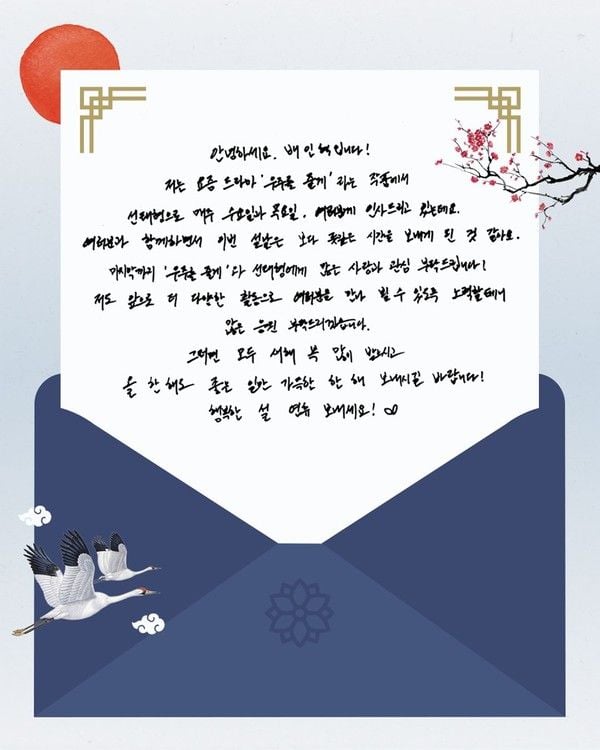 안녕하세요. 배인혁입니다!
저는 요즘 드라마 '우주를 줄게' 라는 작품에서
선태형으로 매주 수요일과 목요일. 여러분께 인사드리고 있는데요.
여러분과 함께하면서 이번 설날은 보다 뜻깊은 시간을 보내게 된 것 같아요.
마지막까지 '우주를 줄게' 와 선태형에게 많은 사랑과 관심 부탁드립니다!
저도 앞으로 더 다양한 활동으로 여러분을 만나 뵐 수 있도록 노력할테니
많은 응원 부탁드리겠습니다.
그러면 모두 새해 복 많이 받으시고
올 한해도 좋은 일만 가득한 한 해 보내시길 바랍니다!
행복한 설 연휴 보내세요!